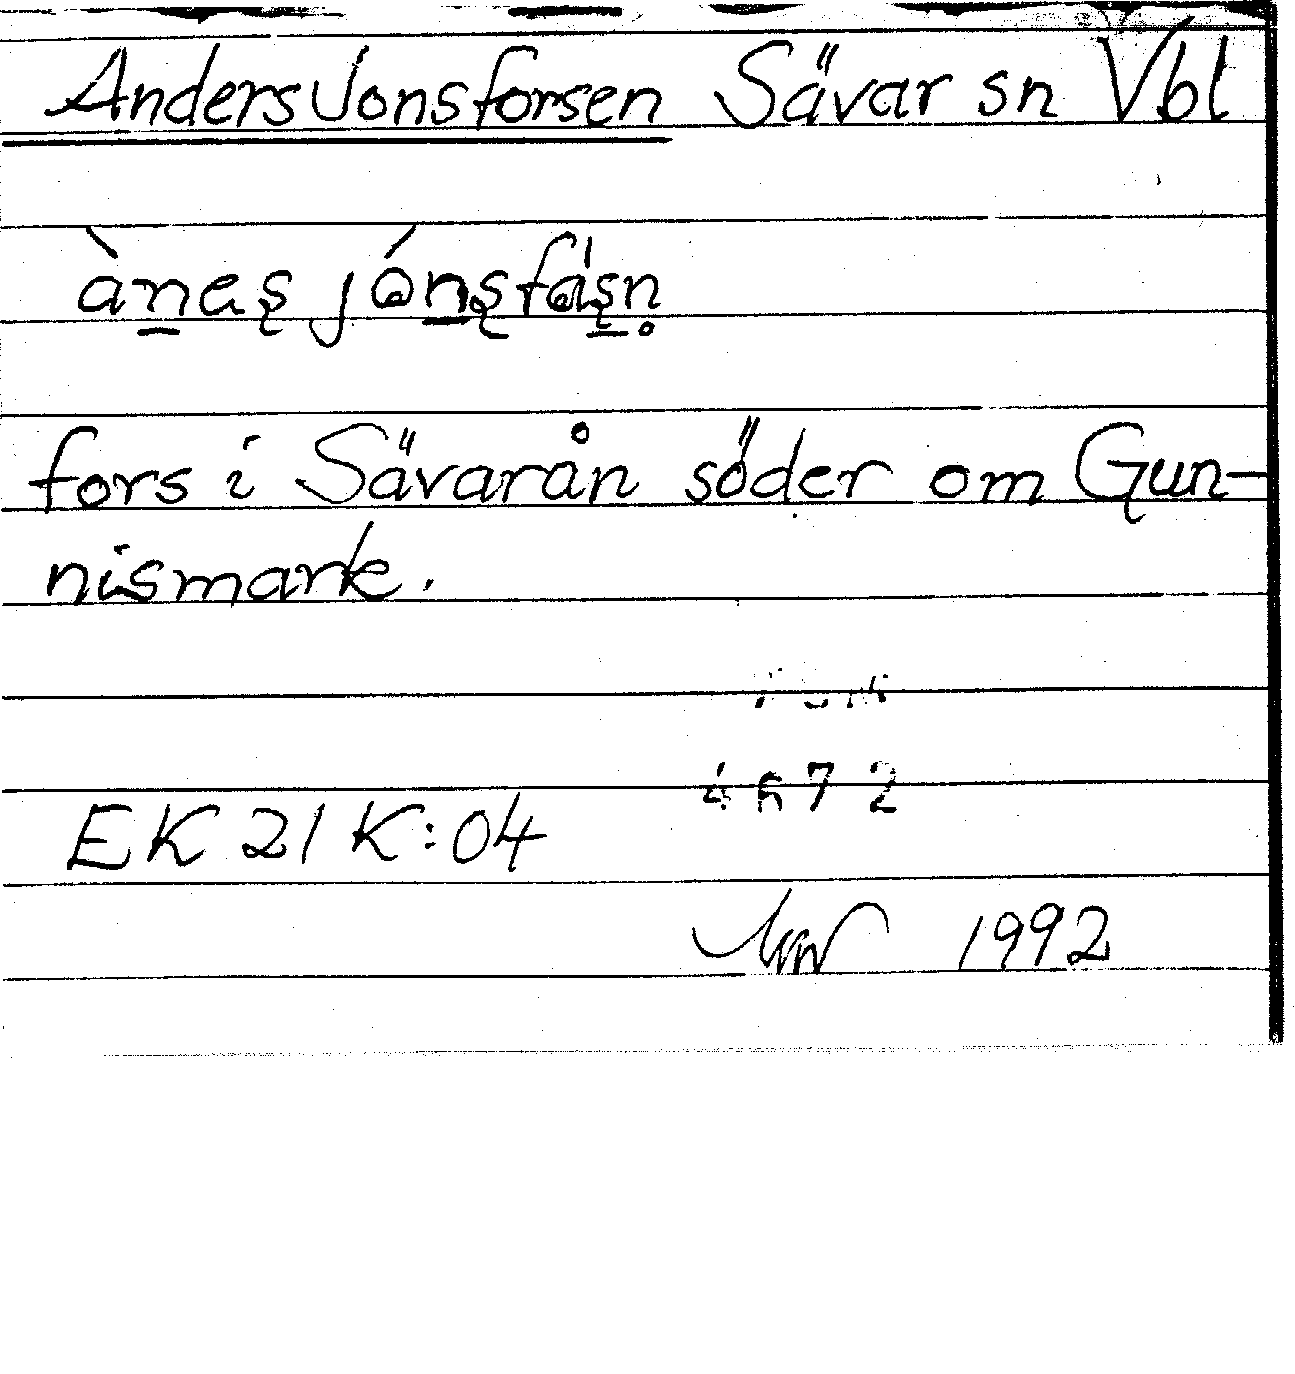 AndersJonsforsen Sävar sn Vbl
fors i Sävarån söder om Gun-
nismark.
4672
EK 21 K:04
1992